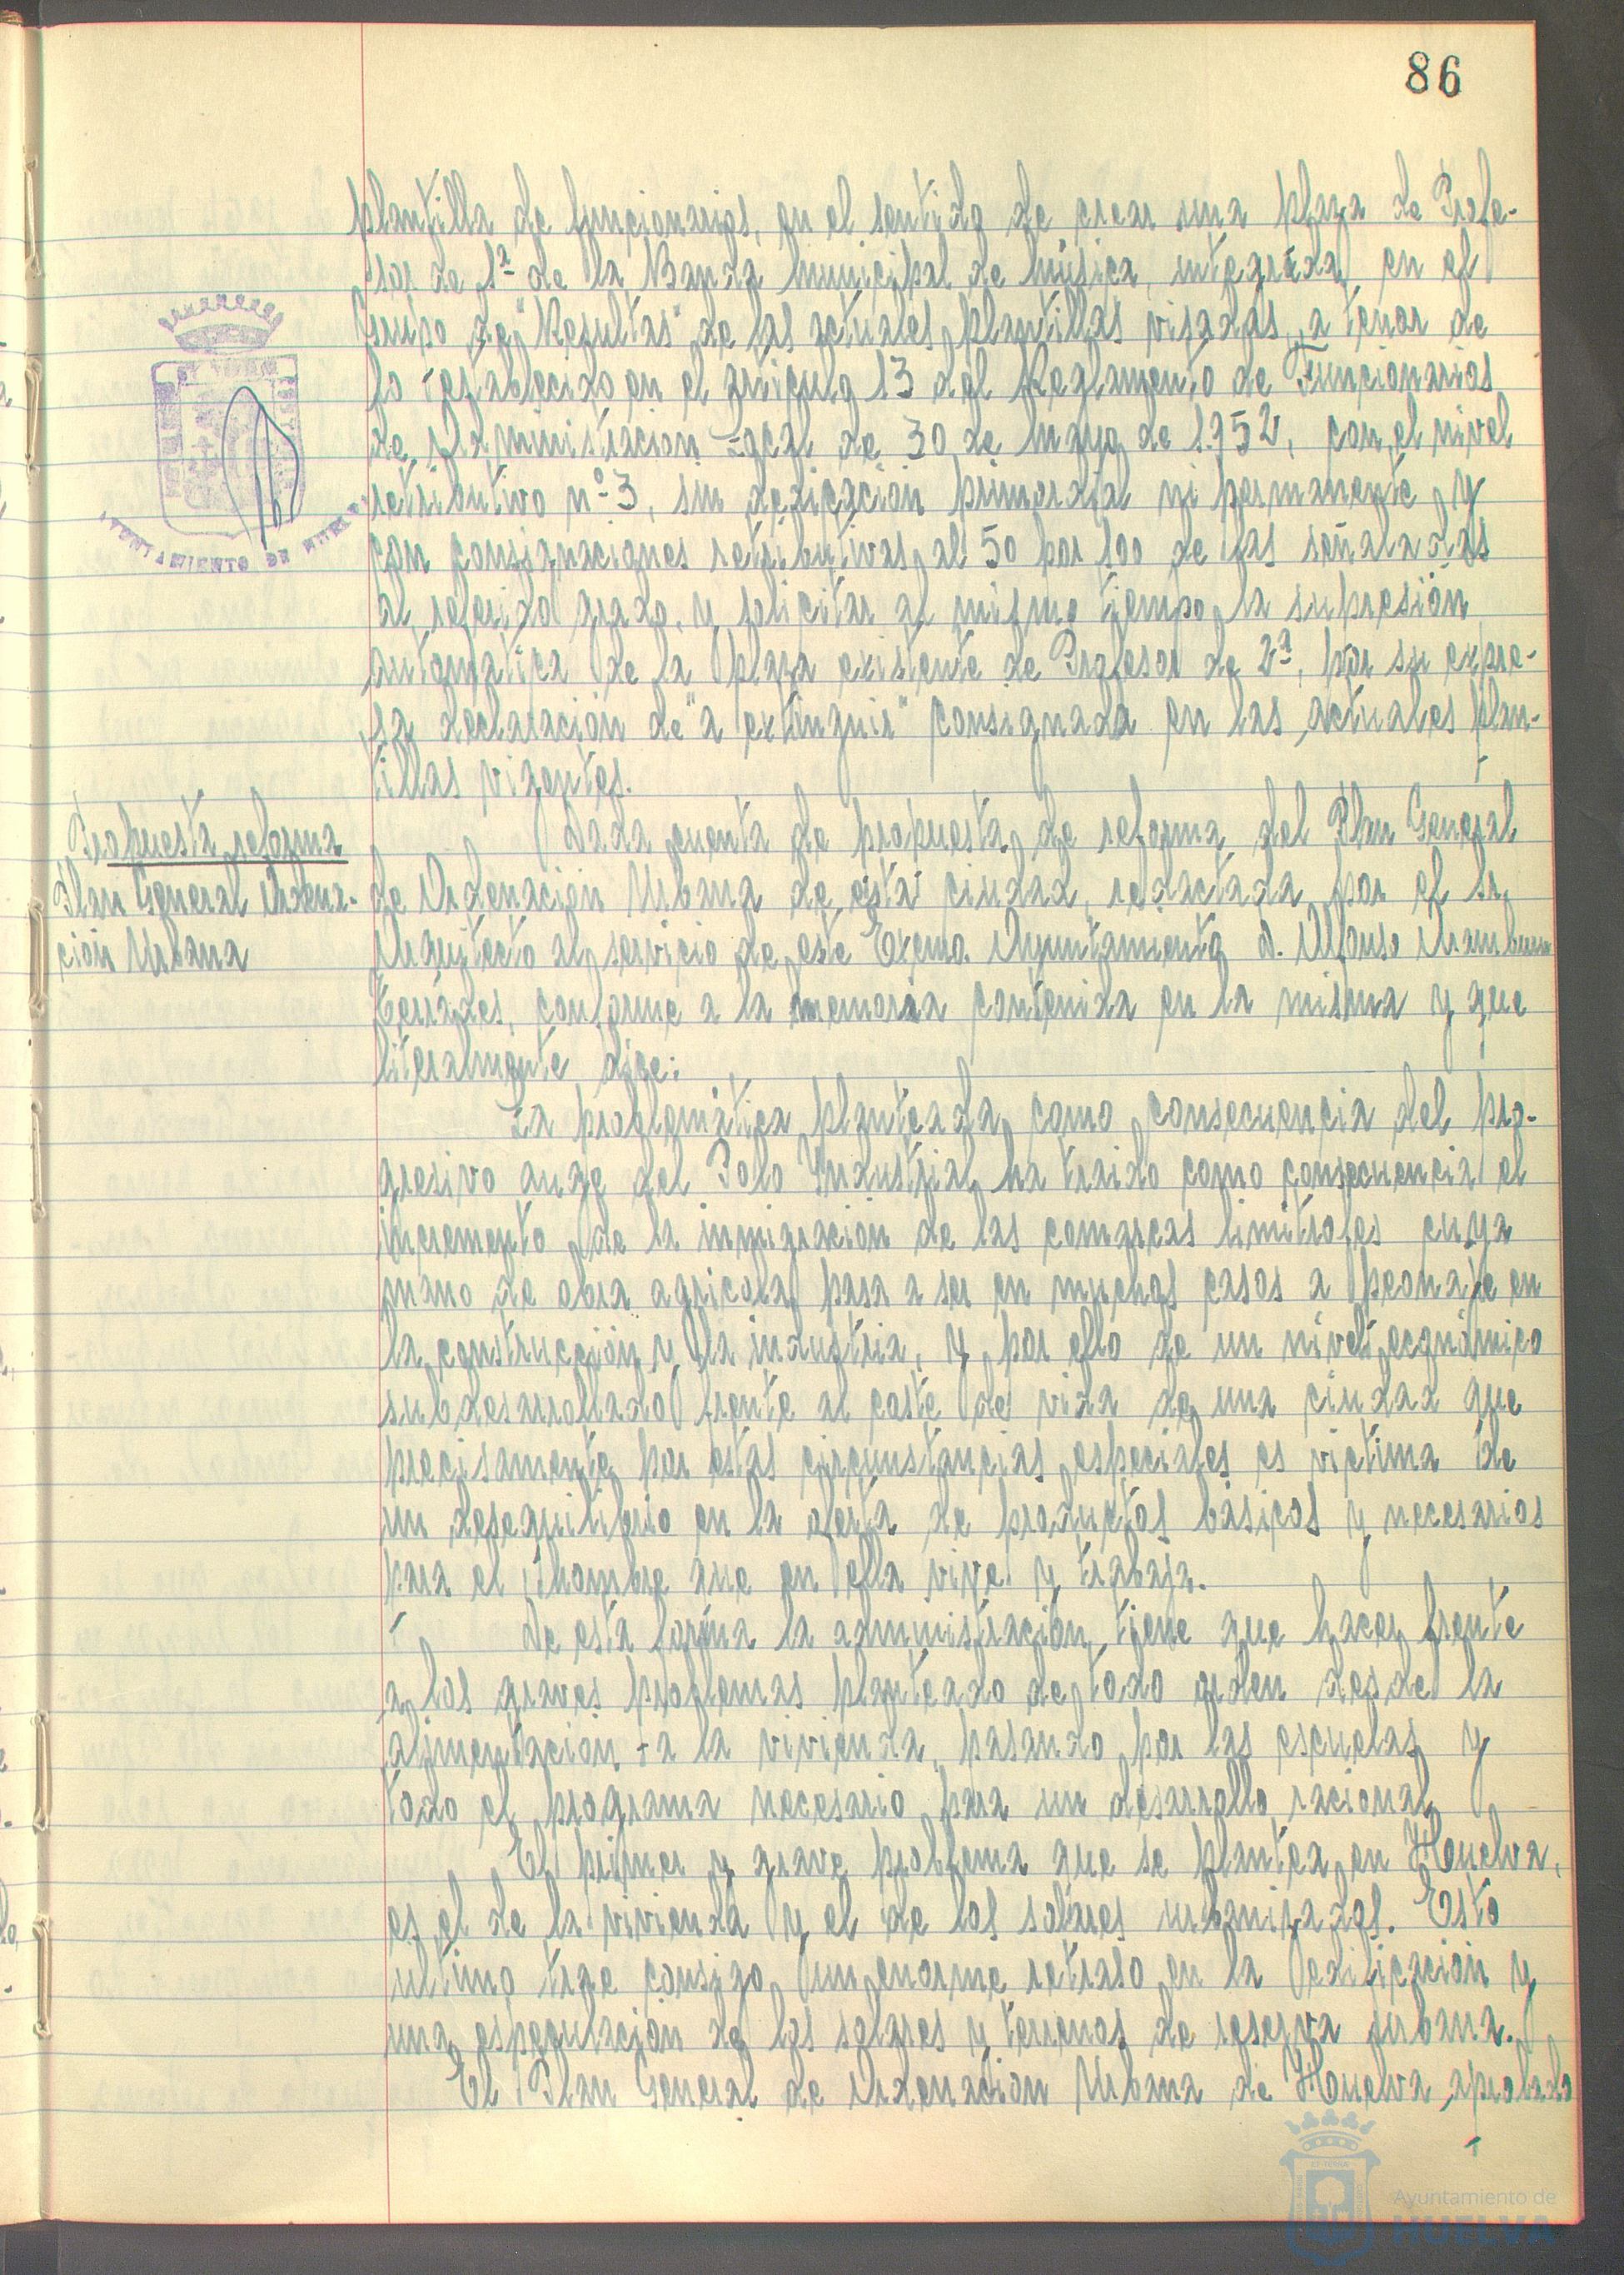 86
plantilla de funcionarios, en el sentido de crear una plaza de Profe-
sor de 1ª de la Banda municipal de música, integrada en el
Grupo de "Resultas" de las actuales plantillas visadas, a tenor de
lo establecido en el artículo 13 del Reglamento de Funcionarios
de Administracion Local de 30 de mayo de 1952, con el nivel
retributivo nº 3, sin dedicación primordial ni permanente y
con consignaciones retributivas al 50 por 100 de las señaladas
al referido grado, y solicitar al mismo tiempo la supresión
automática de la plaza existente de Profesor de 2ª, por su expre-
sa declaración de "a extinguir" consignada en las actuales plan-
tillas vigentes.
AYUNTAMIENTO DE HUELVA
Propuesta reforma
Plan General Ordena-
ción Urbana
Dada cuenta de propuesta de reforma del Plan General
de Ordenación Urbana de esta ciudad, redactada por el Sr.
Arquitecto al servicio de este Excmo. Ayuntamiento D. Alfonso Aramburu
Terrades, conforme a la memoria contenida en la misma y que
literalmente dice:
La problemática planteada como consecuencia del pro-
gresivo auge del Polo Industrial ha traido como consecuencia el
incremento de la inmigracion de las comarcas limitrofes cuya
mano de obra agricola pasa a ser en muchos casos a peonaje en
la construcción y la industria, y por ello de un nivel económico
subdesarrollado frente al coste de vida de una ciudad que
precisamente por estas circunstancias especiales es victima de
un desequilibrio en la oferta de productos básicos y necesarios
para el hombre que en ella vive y trabaja.
De esta forma la administración tiene que hacer frente
a los graves problemas planteado de todo orden desde la
alimentacion a la vivienda, pasando por las escuelas y
todo el programa necesario para un desarrollo racional
El primer y grave problema que se plantea en Huelva,
es el de la vivienda y el de los solares urbanizados. Esto
ultimo trae consigo un enorme retraso en la edificación y
una especulación de los solares y terrenos de reserva urbana.
El Plan General de Ordenación Urbana de Huelva, aprobado
Ayuntamiento de
HUELVA